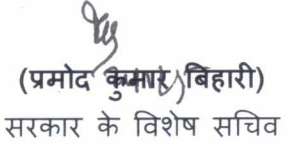 (प्रमोद कुमार बिहारी)
सरकार के विशेष सचिव